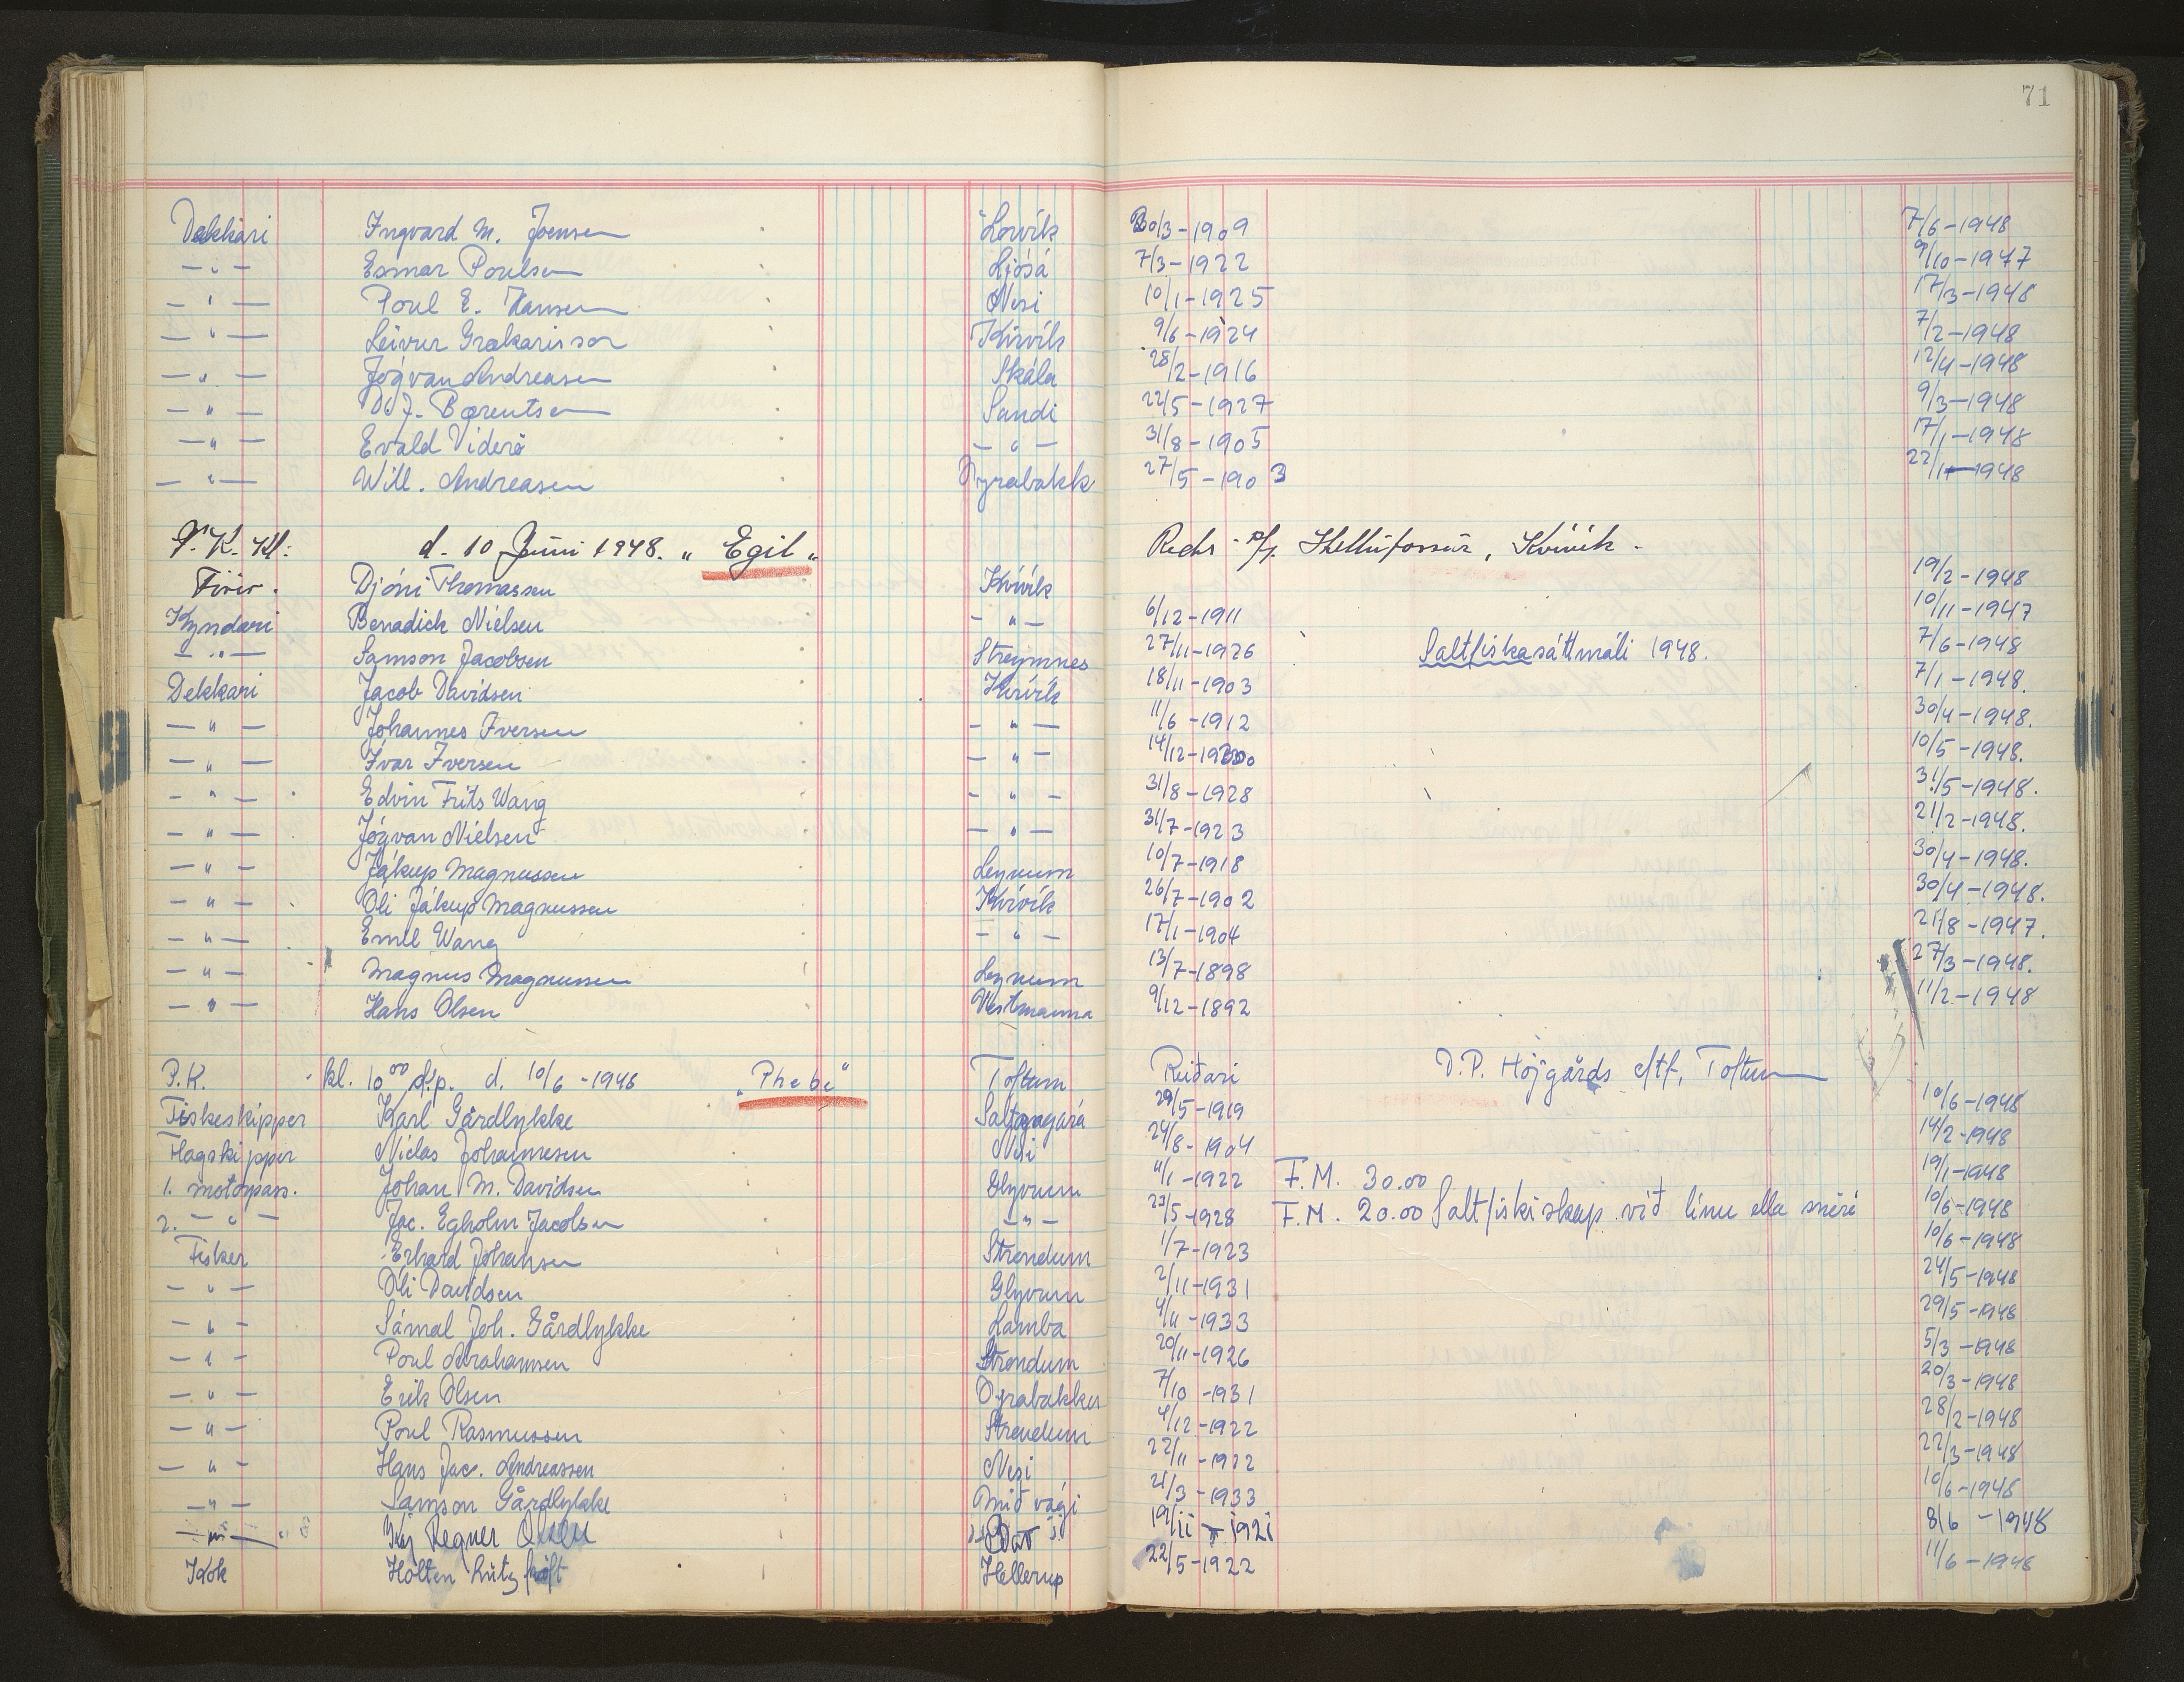 71
Dekkari Ingvard M. Joensen Lorvík 30/3-1909 7/6-1948
— " — Esmar Poulsen Ljósá 7/3-1922 9/10-1947
— " — Poul E. Hansen Nesi 10/1-1925 17/3-1948
— " — Leivur Grækarisson Kvívík 9/6-1924 7/2-1948
— " — Jógvan Andreasen Skála 28/2-1916 12/4-1948
— " — D. J. Bærentsen Sandi 22/5-1927 9/3-1948
— " — Evald Viderö — " — 31/8-1905 17/1-1948
— " — Will. Andreasen Oyrabakk 27/5-1903 22/1-1948
P. K. Kl: d. 10 Juni 1948. „ Egil „ Redr. p/f. Skellifossur, Kvívík -
Förir. Djóni Thomassen Kvívík 19/2-1948
Kyndari Benadich Nielsen — " — 6/12-1911 10/11-1947
— " — Samson Jacobsen Streymnes 27/11-1926 Saltfiskasáttmáli 1948. 7/6-1948
Dekkari Jacob Davidsen Kvívík 18/11-1903 7/1-1948.
— " — Johannes Iversen — " — 11/6-1912 30/4-1948.
— " — Ivar Iversen — " — 14/12-1930 10/5-1948.
— " — Edvin Frits Wang — " — 31/8-1928 31/5-1948.
— " — Jógvan Nielsen — " — 31/7-1923 21/2-1948.
— " — Jákup Magnussen Leynum 10/7-1918 30/4-1948.
— " — Oli Jákup Magnussen Kvívík 26/7-1902 30/4-1948.
— " — Emil Wang — " — 17/1-1904 21/8-1947.
— " — Magnus Magnussen Leynum 13/7-1898 27/3-1948.
— " — Hans Olsen Vestmanna 9/12-1892 11/2-1948
P.K. kl. 10⁰⁰ f.p. d. 10/6-1948 „Phebe“ Toftum Reiðari D.P. Höjgårds eftf, Toftum
Fiskeskipper Karl Gårdlykke Saltangará 29/5-1919 10/6-1948
Flagskipper Niclas Johannesen Nesi 24/8-1904 14/2-1948
1. motorpass. Johan M. Davidsen Glyvum 11/1-1922 F.M. 30.00 19/1-1948
2. — " — Jac. Egholm Jacobsen — " — 23/5-1928 F.M. 20.00 Saltfiskiskap við línu ella snöri 10/6-1948
Fisker Erhard Johansen Strendum 1/7-1923 10/6-1948
— " — Óli Davidsen Glyvum 2/11-1931 24/5-1948
— " — Sámal Joh. Gårdlykke Lamba 4/11-1933 29/5-1948
— " — Poul Abrahamsen Strendum 20/11-1926 5/3-1948
— " — Erik Olsen Oyrabakken 7/10-1931 20/3-1948
— " — Poul Rasmussen Strendum 4/12-1922 28/2-1948
— " — Hans Jac. Andreassen Nesi 22/11-1922 22/3-1948
— " — Samson Gårdlykke Miðvági 21/3-1933 10/6-1948
— " — Kaj Regner 19/11-1921 8/6-1948
Kok Holten Lütz Hellerup 22/5-1922 11/6-1948